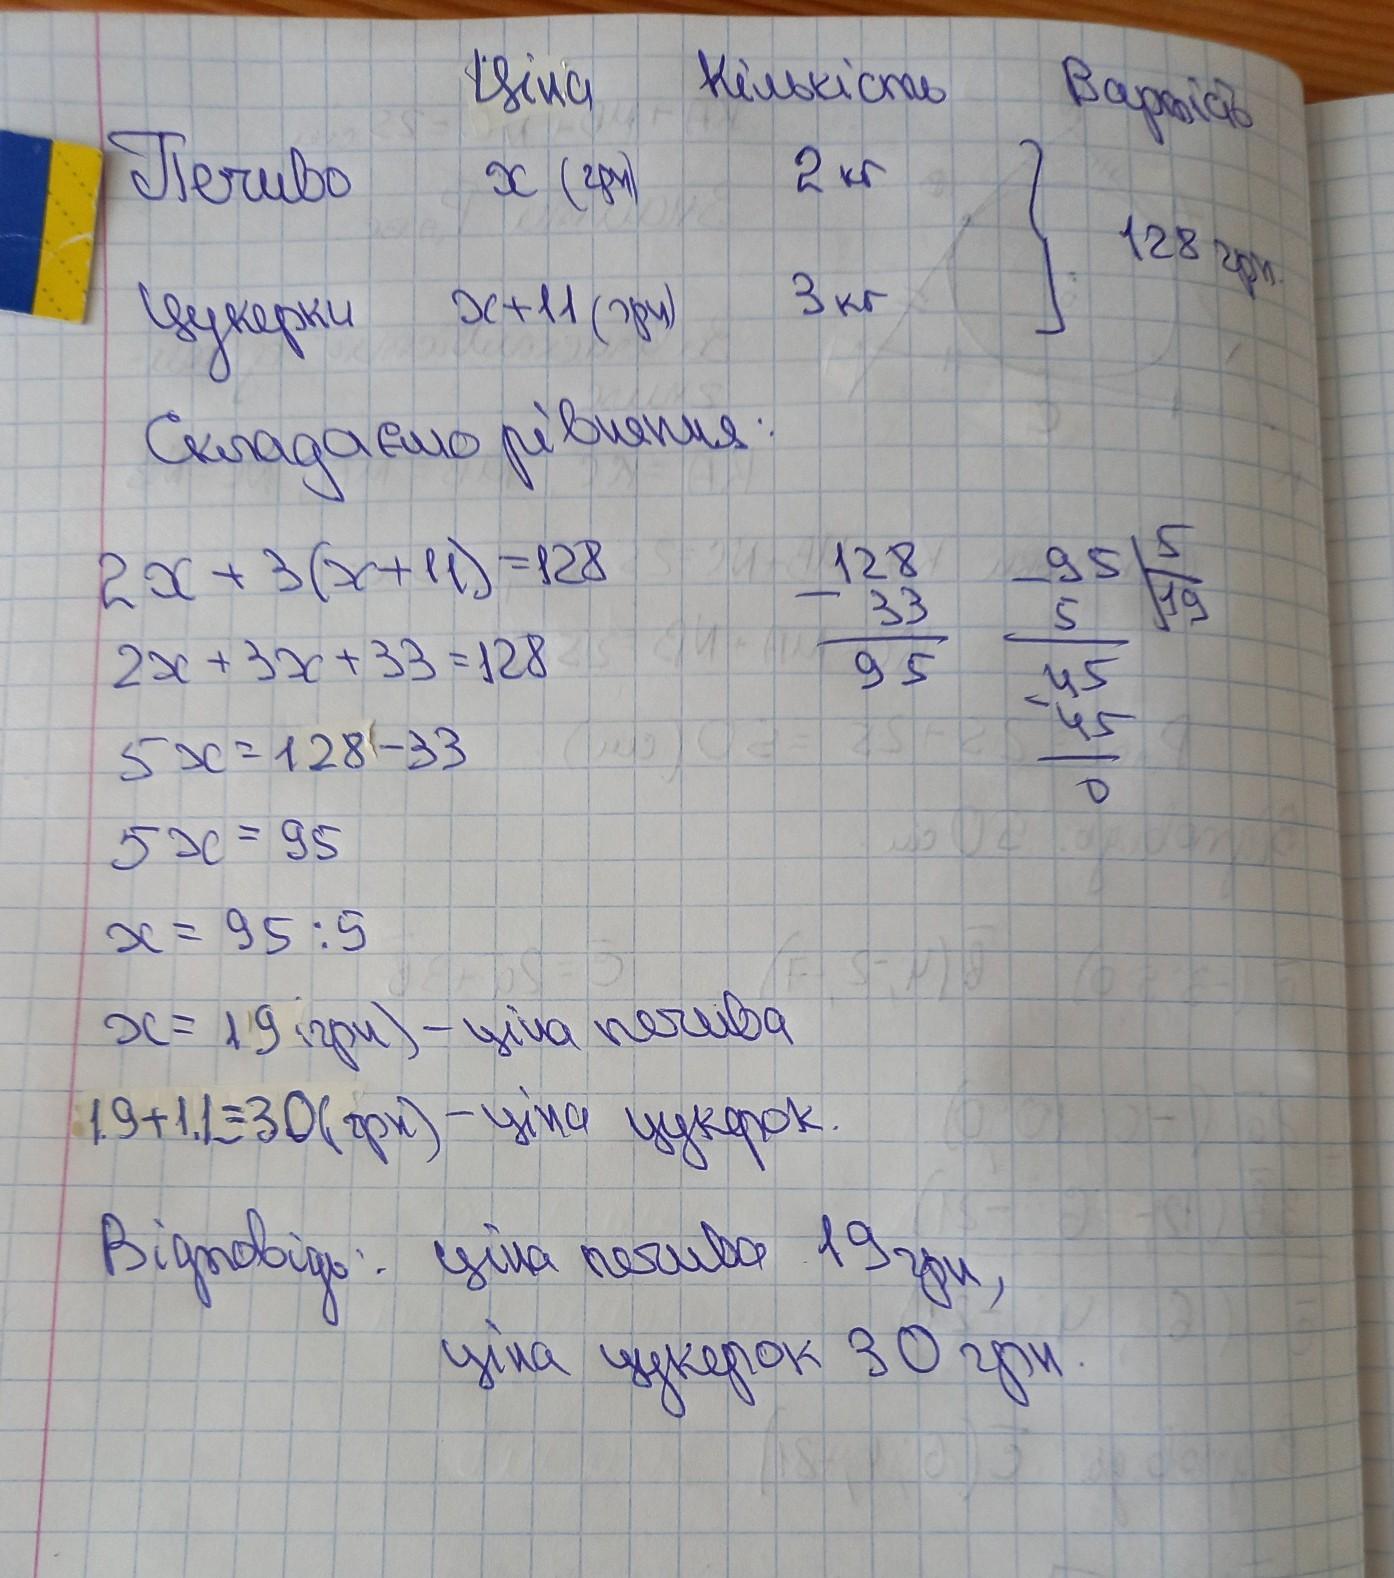 Ціна Кількість Вартість
Печиво х (грн) 2 кг
128 грн.
Цукерки х+11 (грн) 3 кг
Складаємо рівняння:
2х + 3(х+11) = 128
2х + 3х + 33 = 128
5х = 128 - 33
5х = 95
х = 95 : 5
х = 19 (грн) - ціна печива
19+11=30 (грн) - ціна цукерок.
128
- 33
95
- 95 5
5 19
45
- 45
0
Відповідь: ціна печива 19 грн,
ціна цукерок 30 грн.